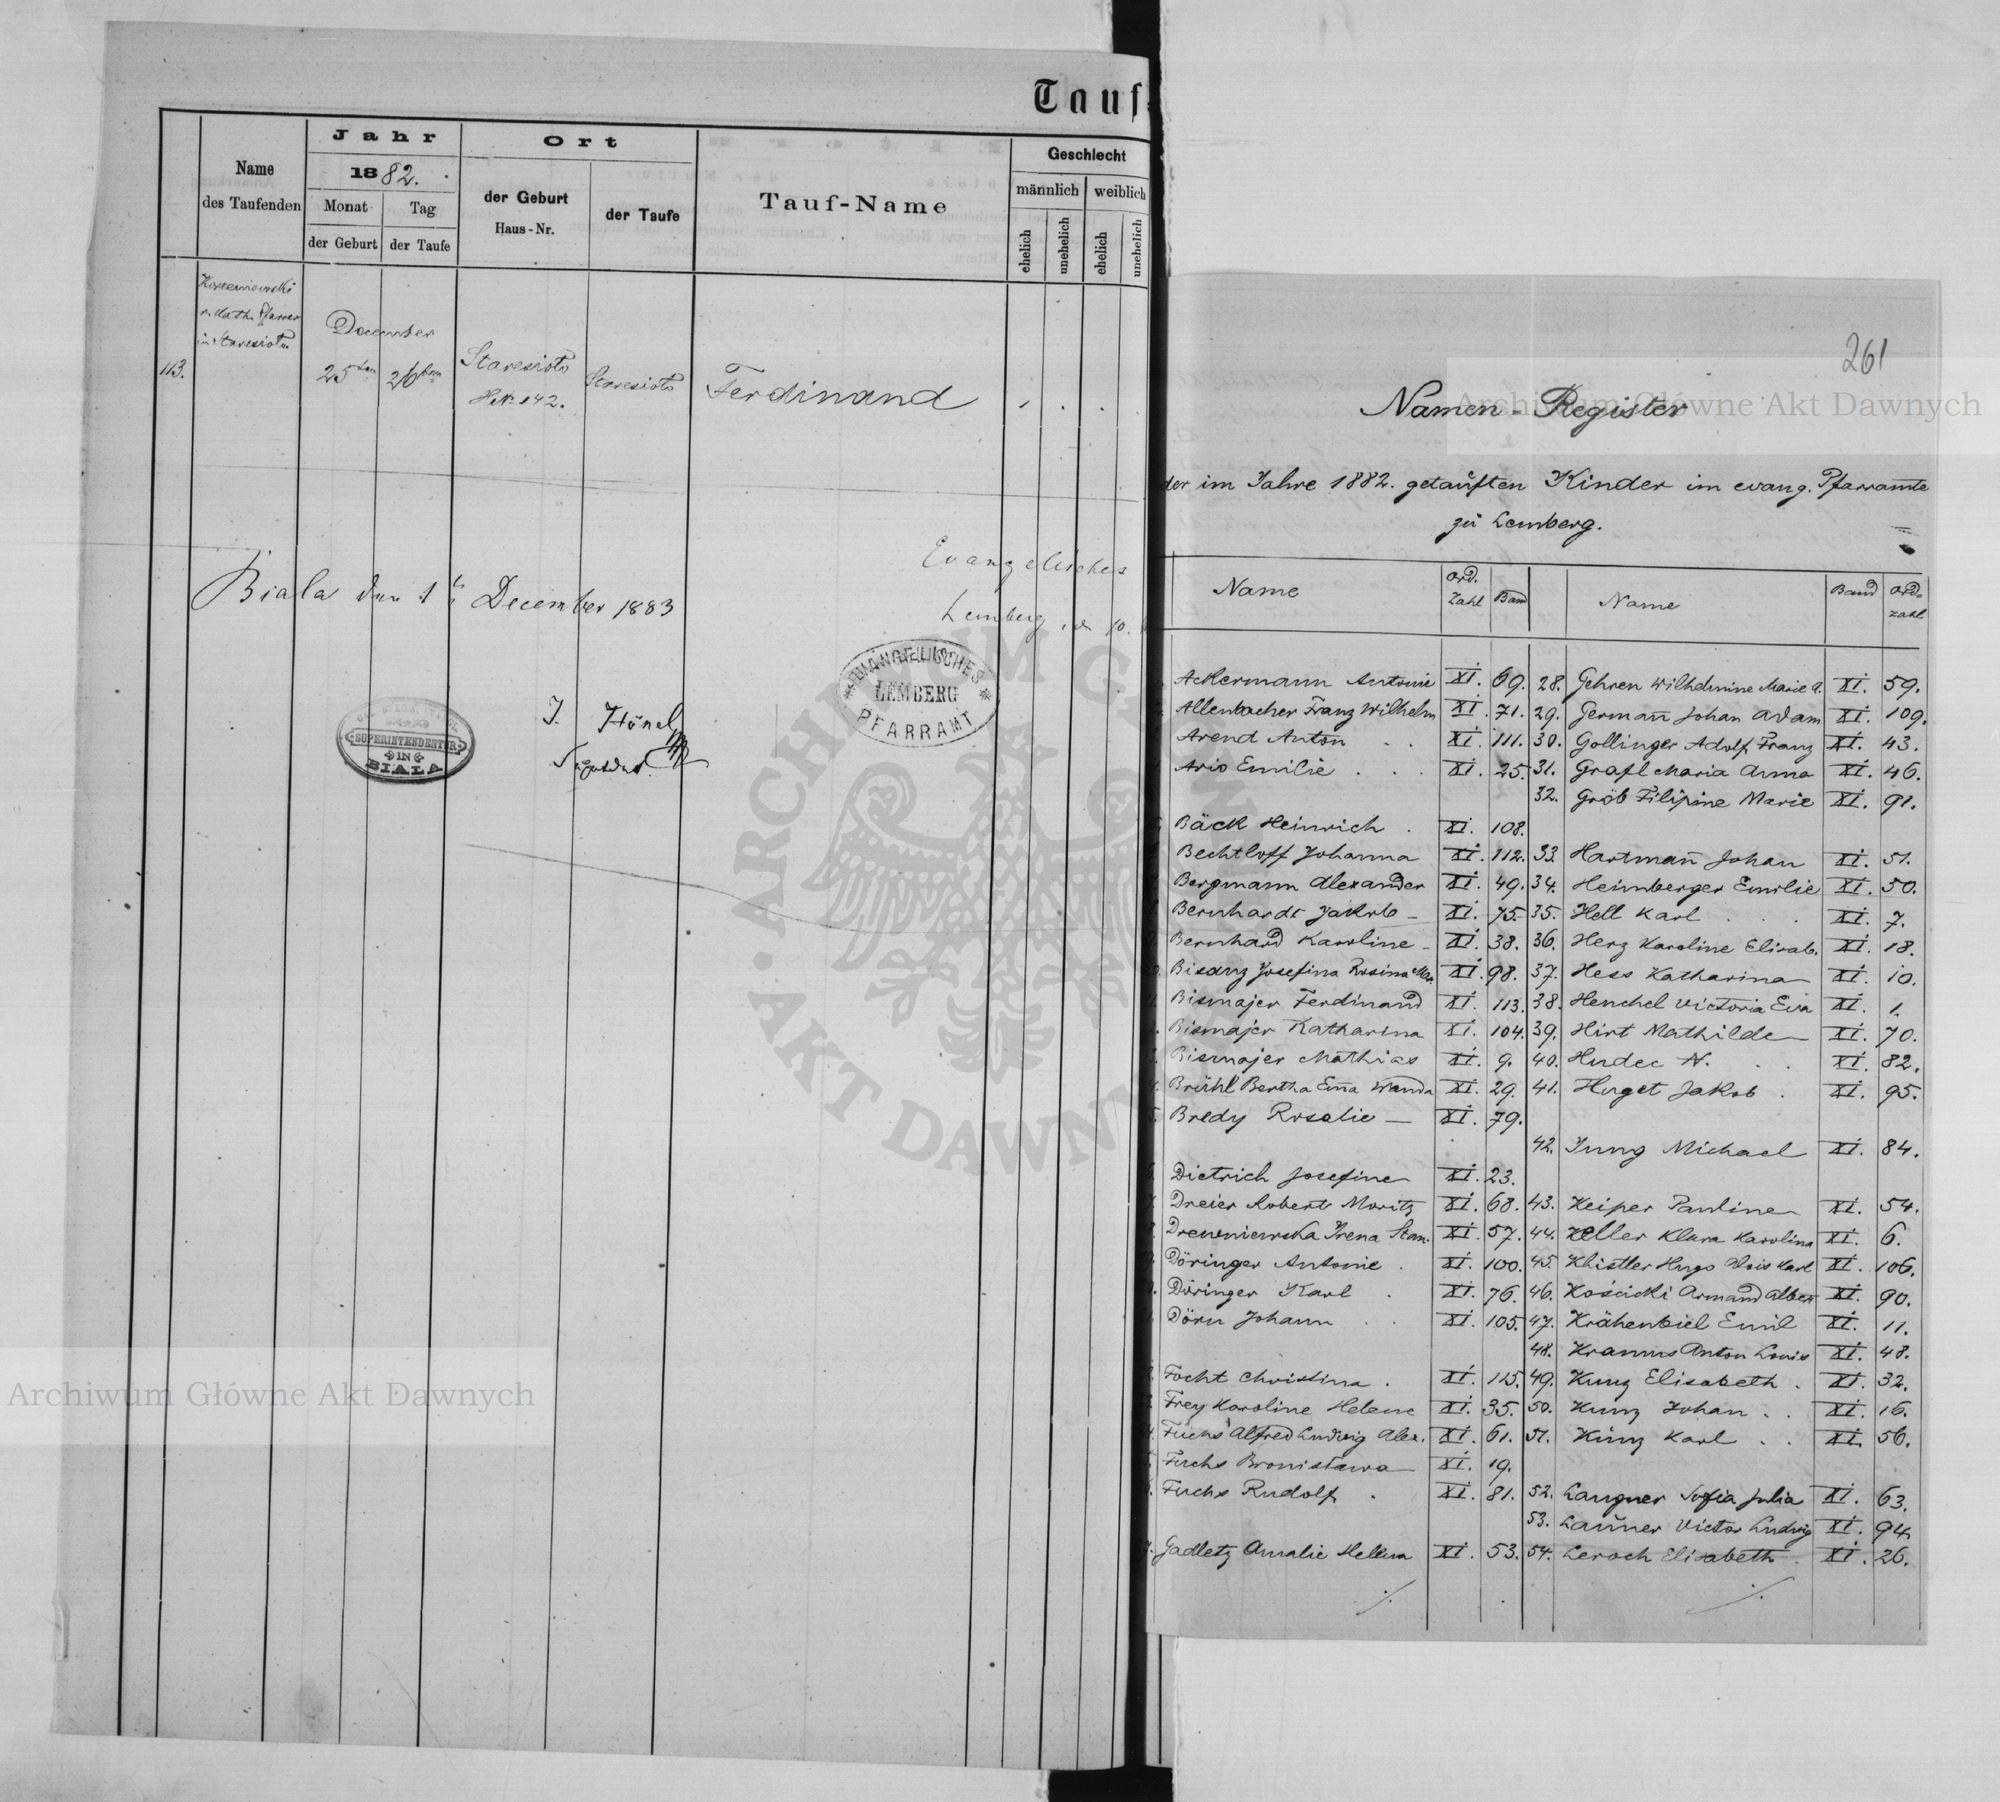 Tauf-
Name
des Taufenden
Jahr
1882.
Monat
Tag
der Geburt
der Taufe
Ort
der Geburt
Haus-Nr.
der Taufe
Tauf-Name
Geschlecht
männlich
weiblich
ehelich
unehelich
ehelich
unehelich
r. kath. Pfarrer
in Staresioło
113.
December
25ten
26ten
Staresioło
HNr. 142.
Staresioło
Ferdinand
Biala den 1ten December 1883
Evangelisches
Lemberg, 10.
EVANGELISCHES
LEMBERG
PFARRAMT
J. Hönel
SUPERINTENDENTUR
IN
BIALA
261
Namen-Register
der im Jahre 1882. getauften Kinder im evang. Pfarramte
zu Lemberg.
Name Ord. Zahl Band Name Band Ord. zahl
Ackermann Antonie XI. 69. 28. Gehren Wilhelmine Marie A. XI. 59.
Allenbacher Franz Wilhelm XI. 71. 29. Germañ Johan Adam XI. 109.
Arend Anton XI. 111. 30. Gollinger Adolf Franz XI. 43.
Ario Emilie XI. 25. 31. Grafl Maria Anna XI. 46.
32. Gröb Filipine Marie XI. 91.
Bäck Heinrich XI. 108.
Bechtloff Johanna XI. 112. 33. Hartmañ Johan XI. 51.
Bergmann Alexander XI. 49. 34. Heimberger Emilie XI. 50.
Bernhardt Jakob XI. 75. 35. Hell Karl XI. 7.
Bernhard Karoline XI. 38. 36. Herz Karoline Elisab. XI. 18.
Bisanz Josefina Rosina Mar. XI. 98. 37. Hess Katharina XI. 10.
Bismajer Ferdinand XI. 113. 38. Henchel Victoria Eva XI. 1.
Bismajer Katharina XI. 104. 39. Hirt Mathilde XI. 70.
Bismajer Mathias XI. 9. 40. Hudec N. XI. 82.
Brühl Bertha Em̃a Wanda XI. 29. 41. Huget Jakob XI. 95.
Bredy Rosalie XI. 79.
42. Jung Michael XI. 84.
Dietrich Josefine XI. 23.
Dreier Robert Moritz XI. 68. 43. Keiper Pauline XI. 54.
Drewniewska Irena Stan. XI. 57. 44. Keller Klara Karolina XI. 6.
Döringer Antonie XI. 100. 45. Khistler Hugo Alois Karl XI. 106.
Döringer Karl XI. 76. 46. Kościcki Armand Albert XI. 90.
Dörn Johann XI. 105. 47. Krähenbiel Emil XI. 11.
48. Kramus Anton Louis XI. 48.
Focht Christina XI. 115. 49. Kunz Elisabeth XI. 32.
Frey Karoline Helene XI. 35. 50. Kunz Johan XI. 16.
Fuchs Alfred Ludwig Alex. XI. 61. 51. Kunz Karl XI. 56.
Fuchs Bronisława XI. 19.
Fuchs Rudolf XI. 81. 52. Langner Sofia Julia XI. 63.
53. Lañner Victor Ludwig XI. 94.
Gadletz Amalie Hellena XI. 53. 54. Leroch Elisabeth XI. 26.
Archiwum Główne Akt Dawnych
Archiwum Główne Akt Dawnych